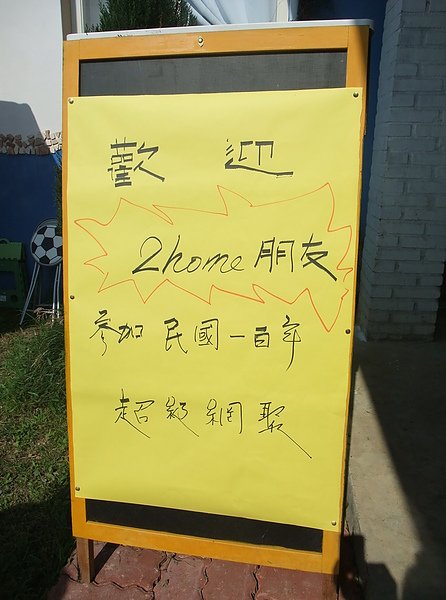 歡迎
2home 朋友
參加 民國一百年
超級網聚